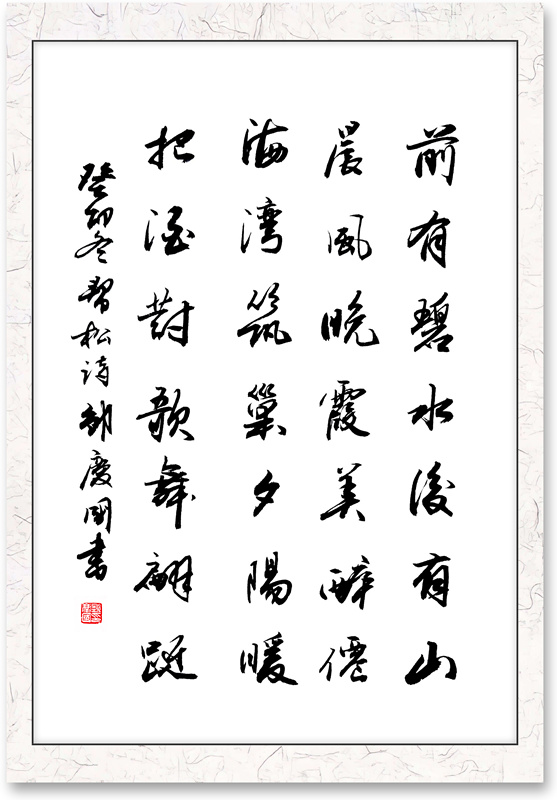 前有碧水後有山
晨風晚霞美醉僊
海湾筑巢夕陽暖
把酒對歌舞翩跹
癸卯冬松詩慶國書